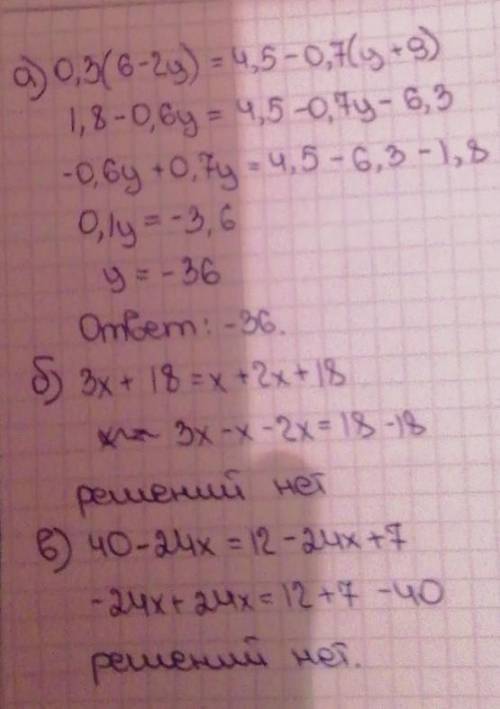 а) 0,3(6-2y) = 4,5 - 0,7(y+9)
1,8 - 0,6y = 4,5 - 0,7y - 6,3
-0,6y + 0,7y = 4,5 - 6,3 - 1,8
0,1y = -3,6
y = -36
Ответ: -36.
б) 3x + 18 = x + 2x + 18
3x - x - 2x = 18 - 18
решений нет
в) 40 - 24x = 12 - 24x + 7
-24x + 24x = 12 + 7 - 40
решений нет.